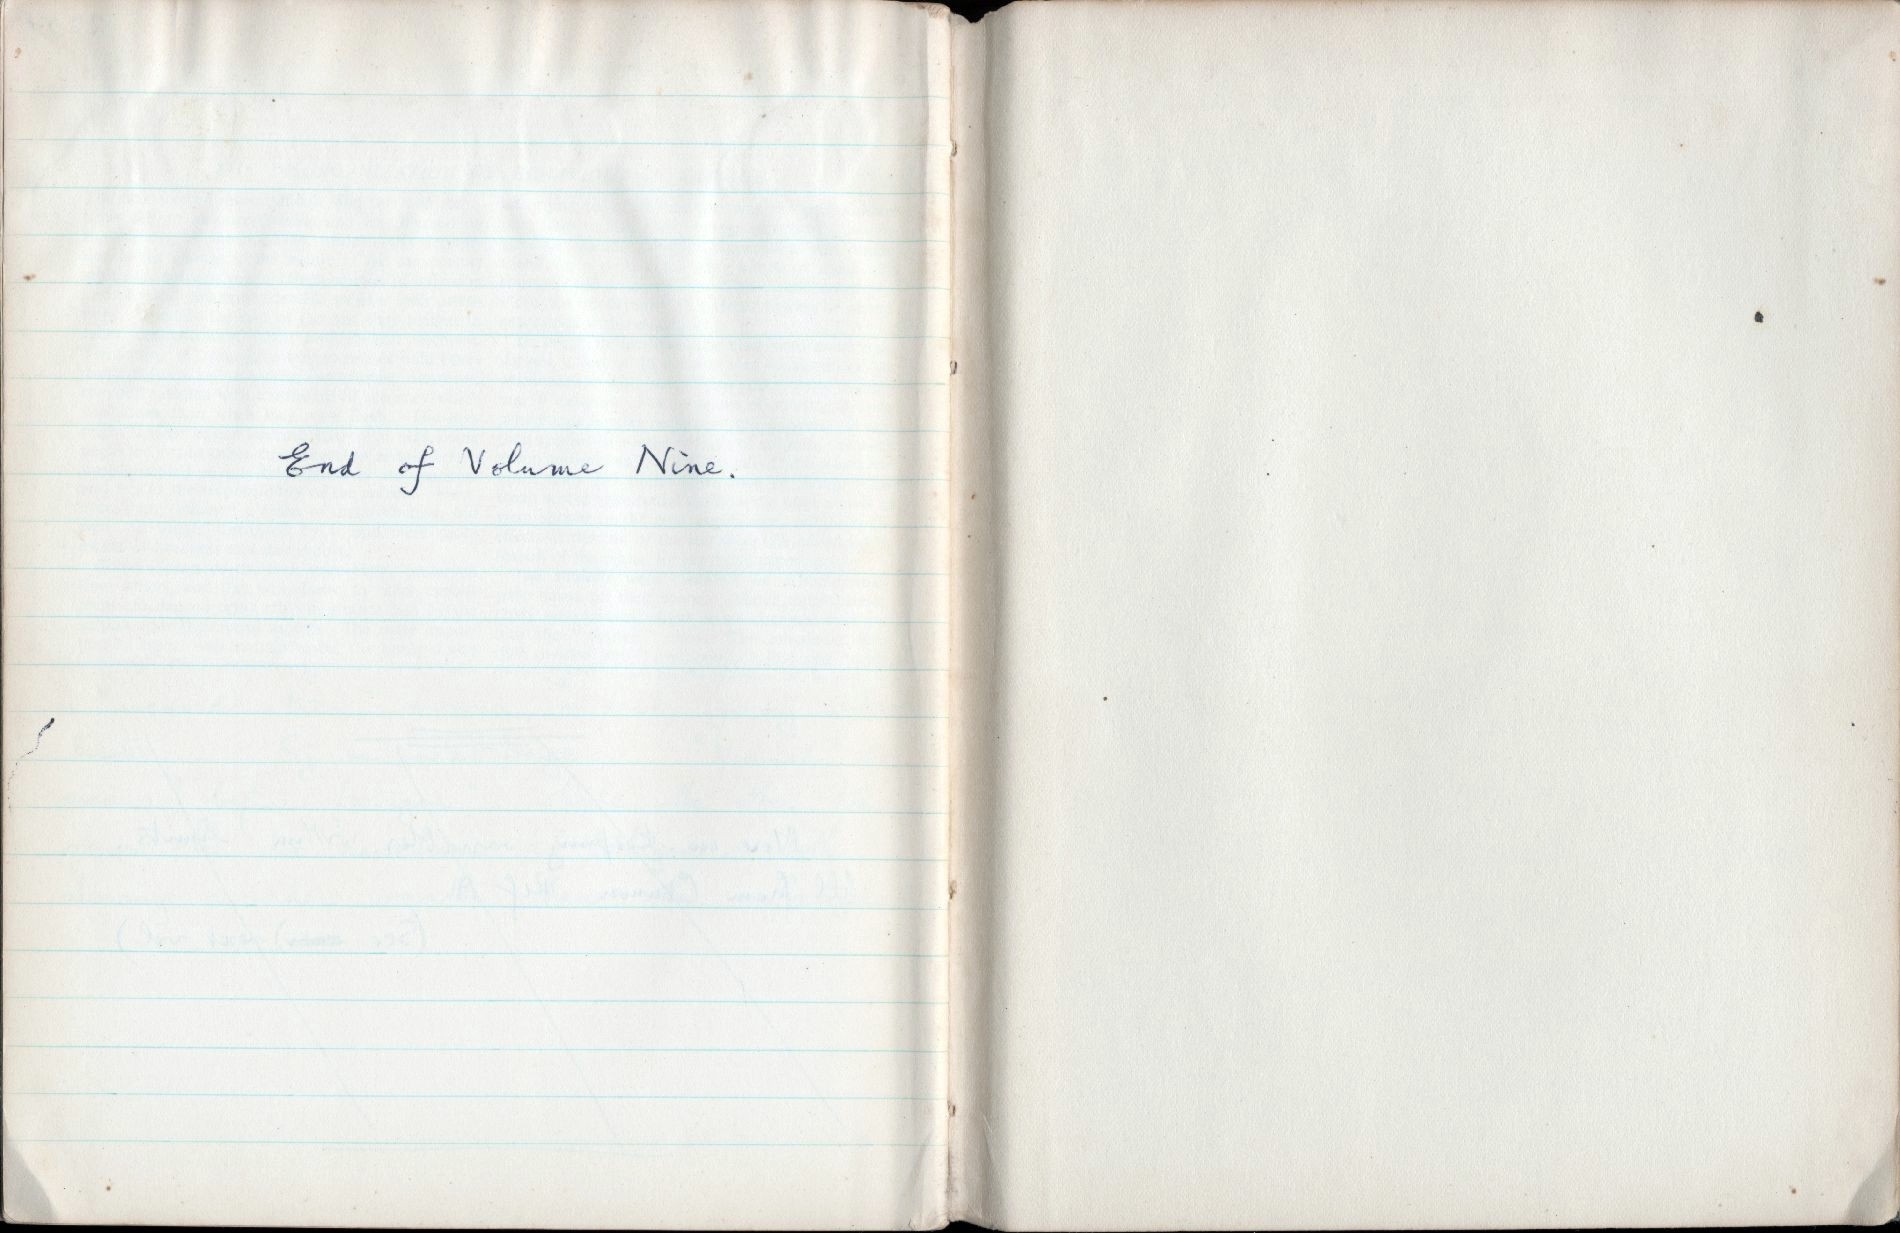 End of Volume Nine.